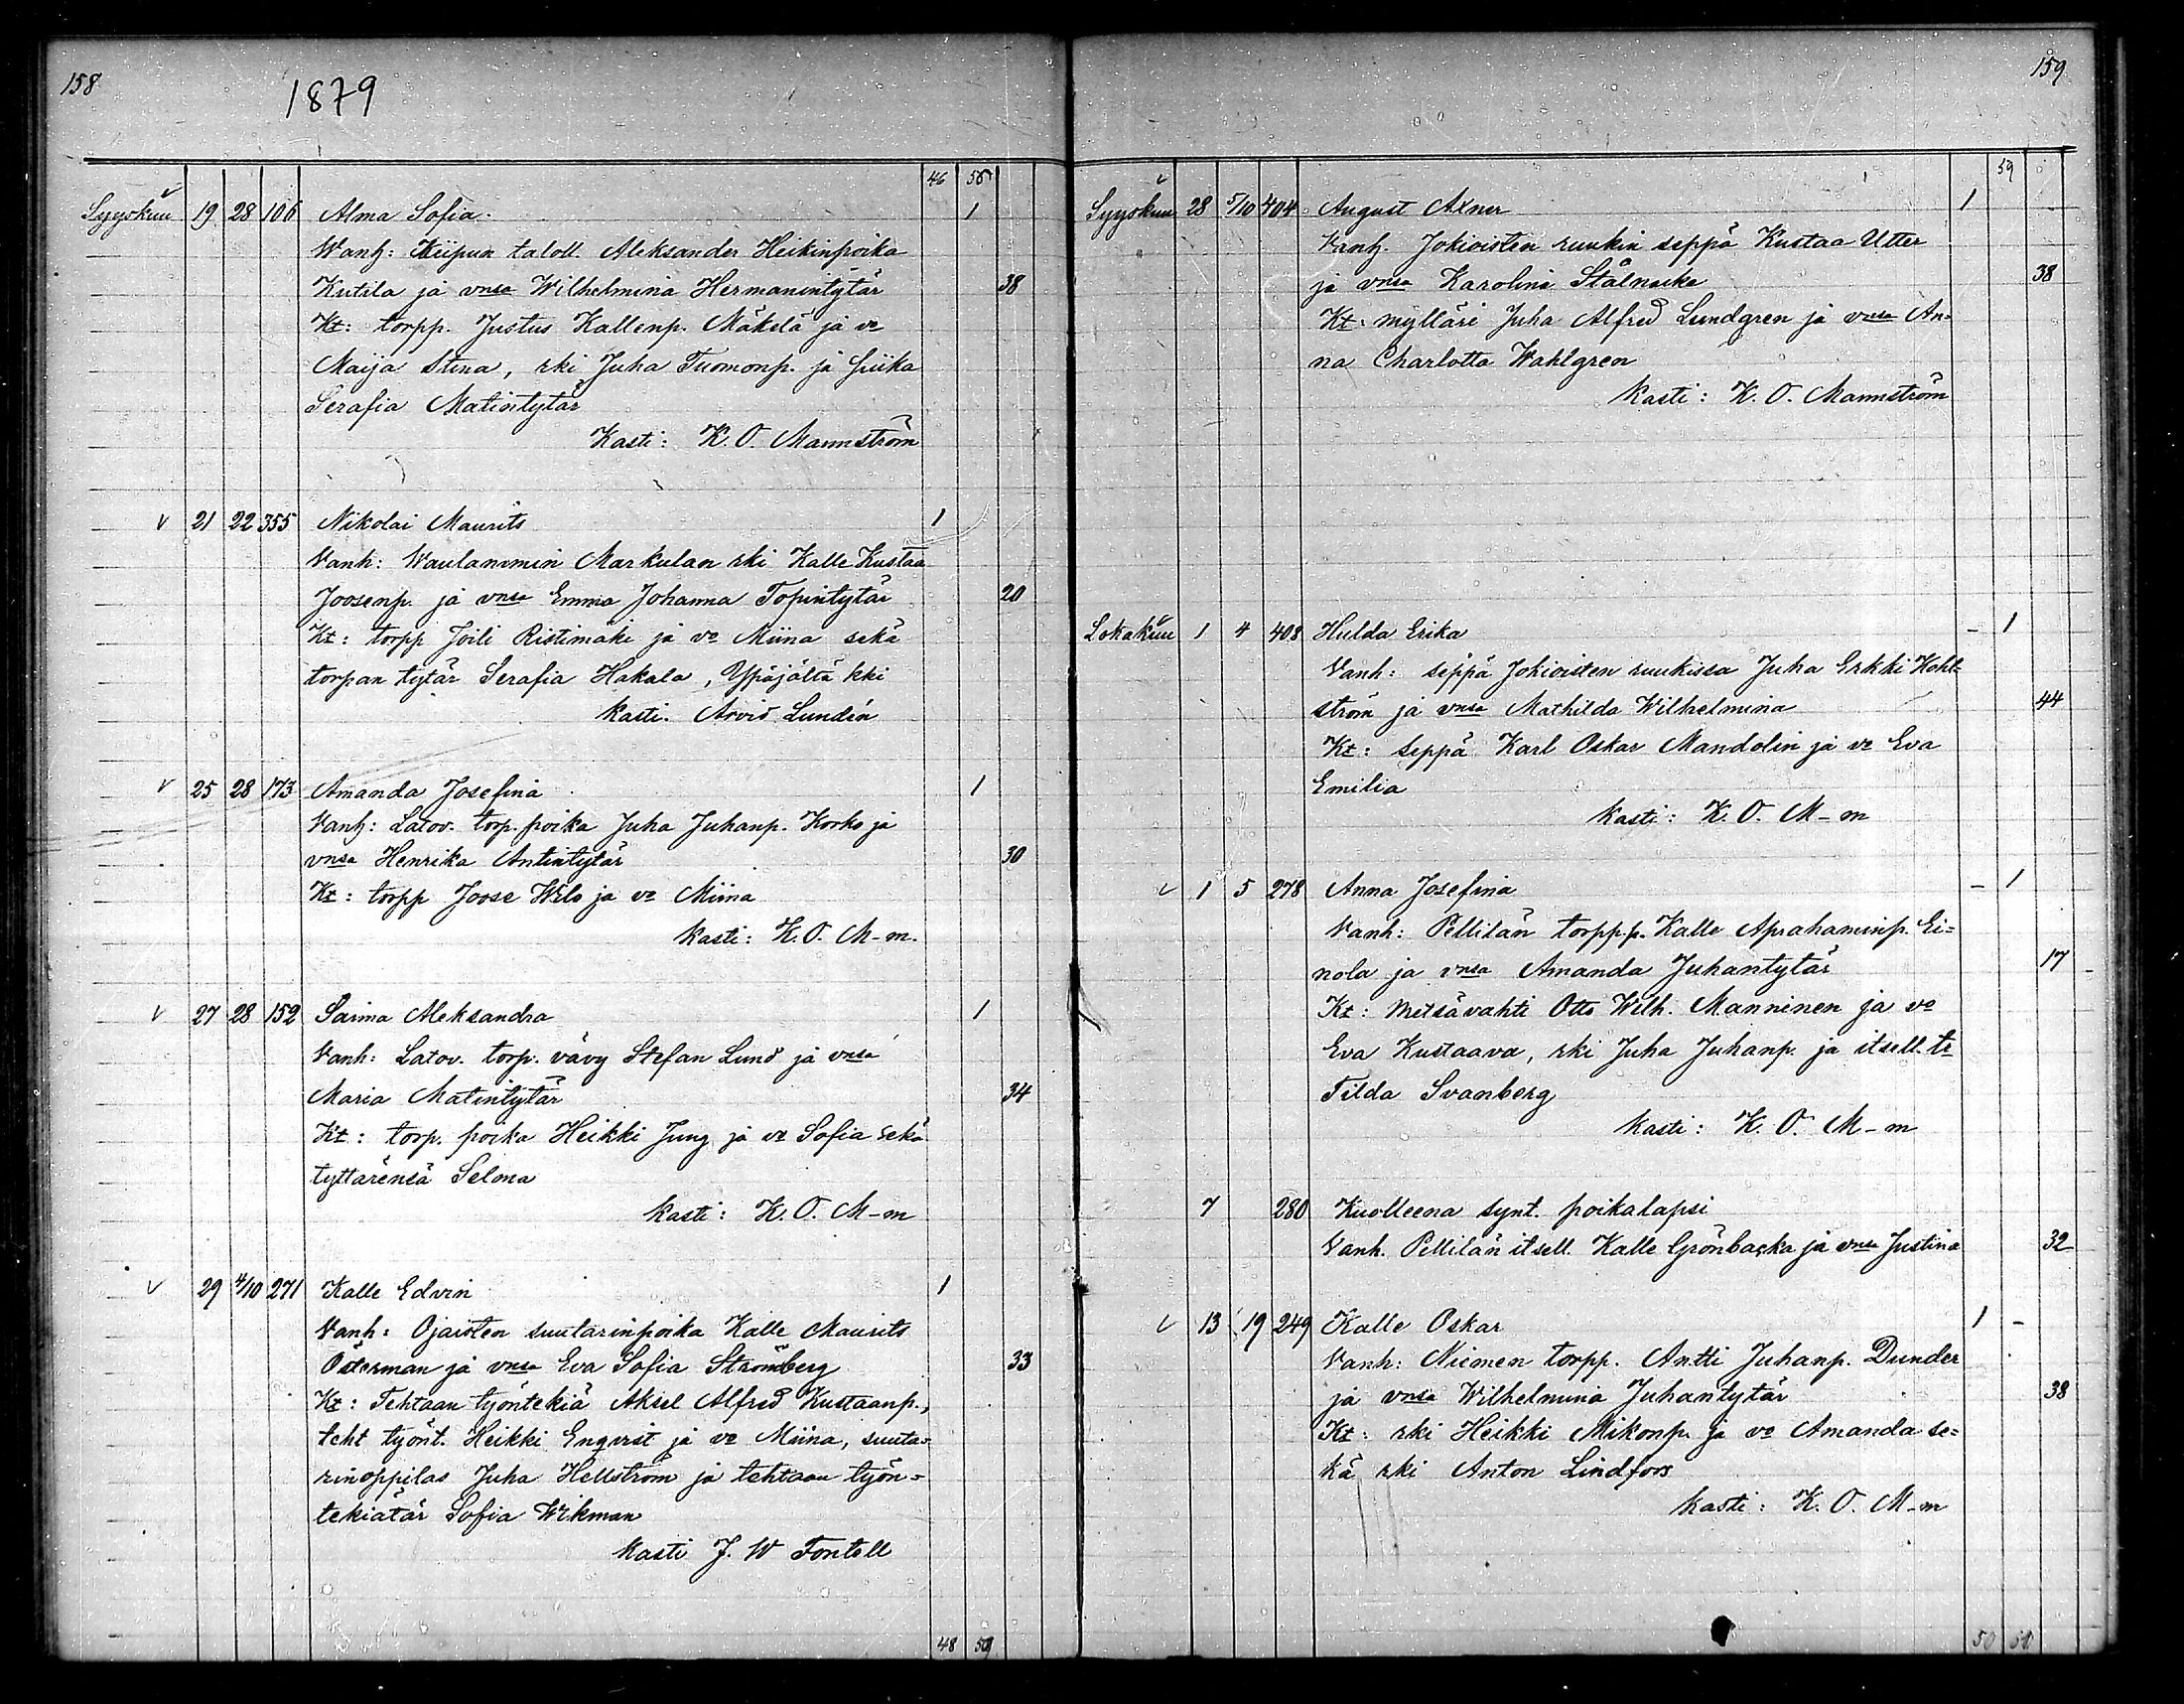 158
1879
46 56
Syyskuu 19 28 106 Alma Sofia. 1
Wanh: taloll. Aleksander Heikinpoika
Kutila ja vnsa Wilhelmina Hermanintytär 38
Kt: torpp. Justus Kallenp. Mäkelä ja vo
Maija Stina, rki Juha Tuomonp. ja piika
Serafia Matintytär
Kasti: K. O. Mannström
21 22 355 Nikolai Maurits 1
Vanh: Waulammin Markulan rki Kalle Kustaa
Joosenp. ja vnsa Emma Johanna Topintytär 20
Kt: torpp Joili Ristimäki ja vo Miina sekä
torpan tytär Serafia Hakala, Ypäjältä kki
Kasti. Arvid Lundén
25 28 173 Amanda Josefina 1
Vanh: Latov. torp. poika Juha Juhanp. Korho ja
vnsa Henrika Antintytär 30
Kt: torpp Joose Wilo ja vo Miina
Kasti: K. O. M-m.
27 28 152 Saima Aleksandra 1
Vanh: Latov. torp. vävy Stefan Lund ja vnsa
Maria Matintytär 34
Kt: torp. poika Heikki Jung ja vo Sofia sekä
tyttärensä Selma
Kasti: K. O. M-m
29 4/10 271 Kalle Edvin 1
Vanh: Ojaisten suutarinpoika Kalle Maurits
Österman ja vnsa Eva Sofia Strömberg 33
Kt: Tehtaan työntekiä Aksel Alfred Kustaanp.,
teht työnt. Heikki Enqvist ja vo Miina, suuta=
rinoppilas Juha Hellström ja tehtaan työn=
tekiätär Sofia Wikman
Kasti J. W Fontell
48 59
159
59
Syyskuu 28 5/10 404 August Axner 1
Vanh. Jokioisten ruukin seppä Kustaa Utter
ja vnsa Karolina Stålnacke 38
Kt: mylläri Juha Alfred Lundgren ja vnsa An=
na Charlotta Wahlgren
Kasti: K. O. Mannström
Lokakuu 1 4 408 Hulda Erika - 1
Vanh: seppä Jokioisten ruukissa Juha Erkki Hohl=
ström ja vnsa Mathilda Wilhelmina 44
Kt: seppä Karl Oskar Mandolin ja vo Eva
Emilia
Kasti: K. O. M-m
1 5 278 Anna Josefina - 1
Vanh: Pellilän torpp.p. Kalle Aprahaminp. Ei=
nola ja vnsa Amanda Juhantytär 17
Kt: Metsävahti Otto Wilh. Manninen ja vo
Eva Kustaava, rki Juha Juhanp. ja itsell. tr
Tilda Svanberg
Kasti: K. O. M-m
7 280 Kuolleena synt. poikalapsi
Vanh. Pellilän itsell. Kalle Grönbacka ja vnsa Justina 32
13 19 249 Kalle Oskar 1 -
Vanh: Niemen torpp. Antti Juhanp. Dunder
ja vnsa Wilhelmina Juhantytär 38
Kt: rki Heikki Mikonp. ja vo Amanda se=
kä rki Anton Lindfors
Kasti: K. O. M-m
50